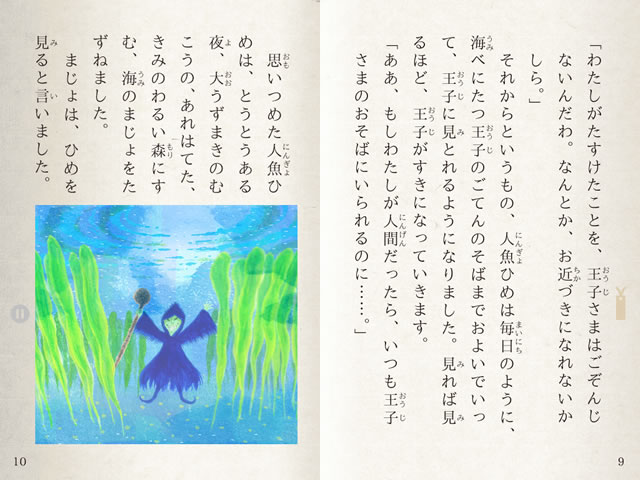 「わたしがたすけたことを、王子さまはごぞんじ
ないんだわ。なんとか、お近づきになれないか
しら。」
それからというもの、人魚ひめは毎日のように、
海べにたつ王子のごてんのそばまでおよいでいっ
て、王子に見とれるようになりました。見れば見
るほど、王子がすきになっていきます。
「ああ、もしわたしが人間だったら、いつも王子
さまのおそばにいられるのに……。」
9
思いつめた人魚ひ
めは、とうとうある
夜、大うずまきのむ
こうの、あれはてた、
きみのわるい森にす
む、海のまじょをた
ずねました。
まじょは、ひめを
見ると言いました。
10